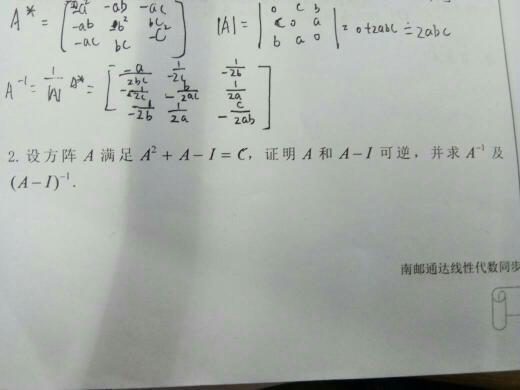 A* = [ -a² -ab -ac |A| = | 0 c b
-ab -b² bc | c 0 a | = 0+2abc = 2abc
-ac bc -c² ] | b a 0 |
A⁻¹ = 1/|A| A* = [ -a/2bc 1/-2c 1/-2b
-1/2c -b/2ac 1/2a
-1/2b 1/2a -c/2ab ]
2. 设方阵 A 满足 A² + A − I = C, 证明 A 和 A − I 可逆, 并求 A⁻¹ 及
(A − I)⁻¹.
南邮通达线性代数同步